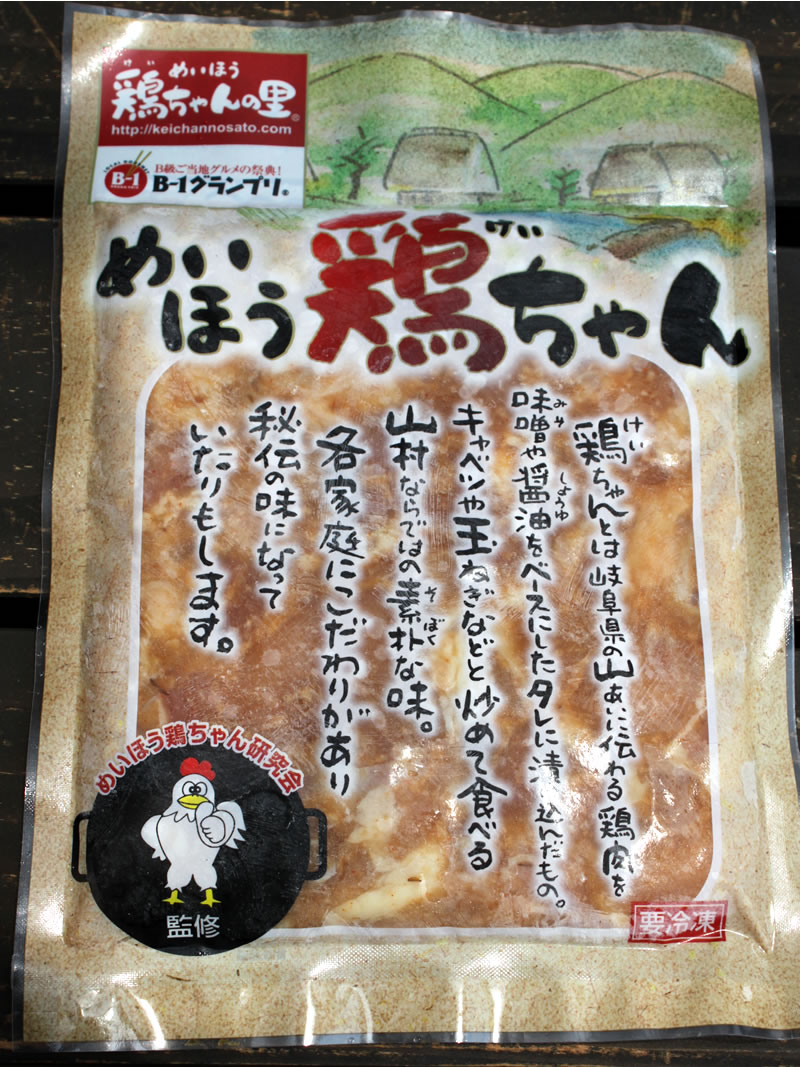 けい
めいほう
鶏ちゃんの里®
http://keichannosato.com
LOCAL GOURMET
B-1
GRAND PRIX
B級ご当地グルメの祭典!
B-1グランプリ®
めいほう
鶏ちゃん
けい
鶏ちゃんとは岐阜県の山あいに伝わる鶏肉を
けい
味噌や醤油をベースにしたタレに漬け込んだもの。
みそ
しょうゆ
キャベツや玉ねぎなどと炒めて食べる
山村ならではの素朴な味。
そぼく
各家庭にこだわりがあり
秘伝の味になって
いたりもします。
めいほう鶏ちゃん研究会
監修
要冷凍